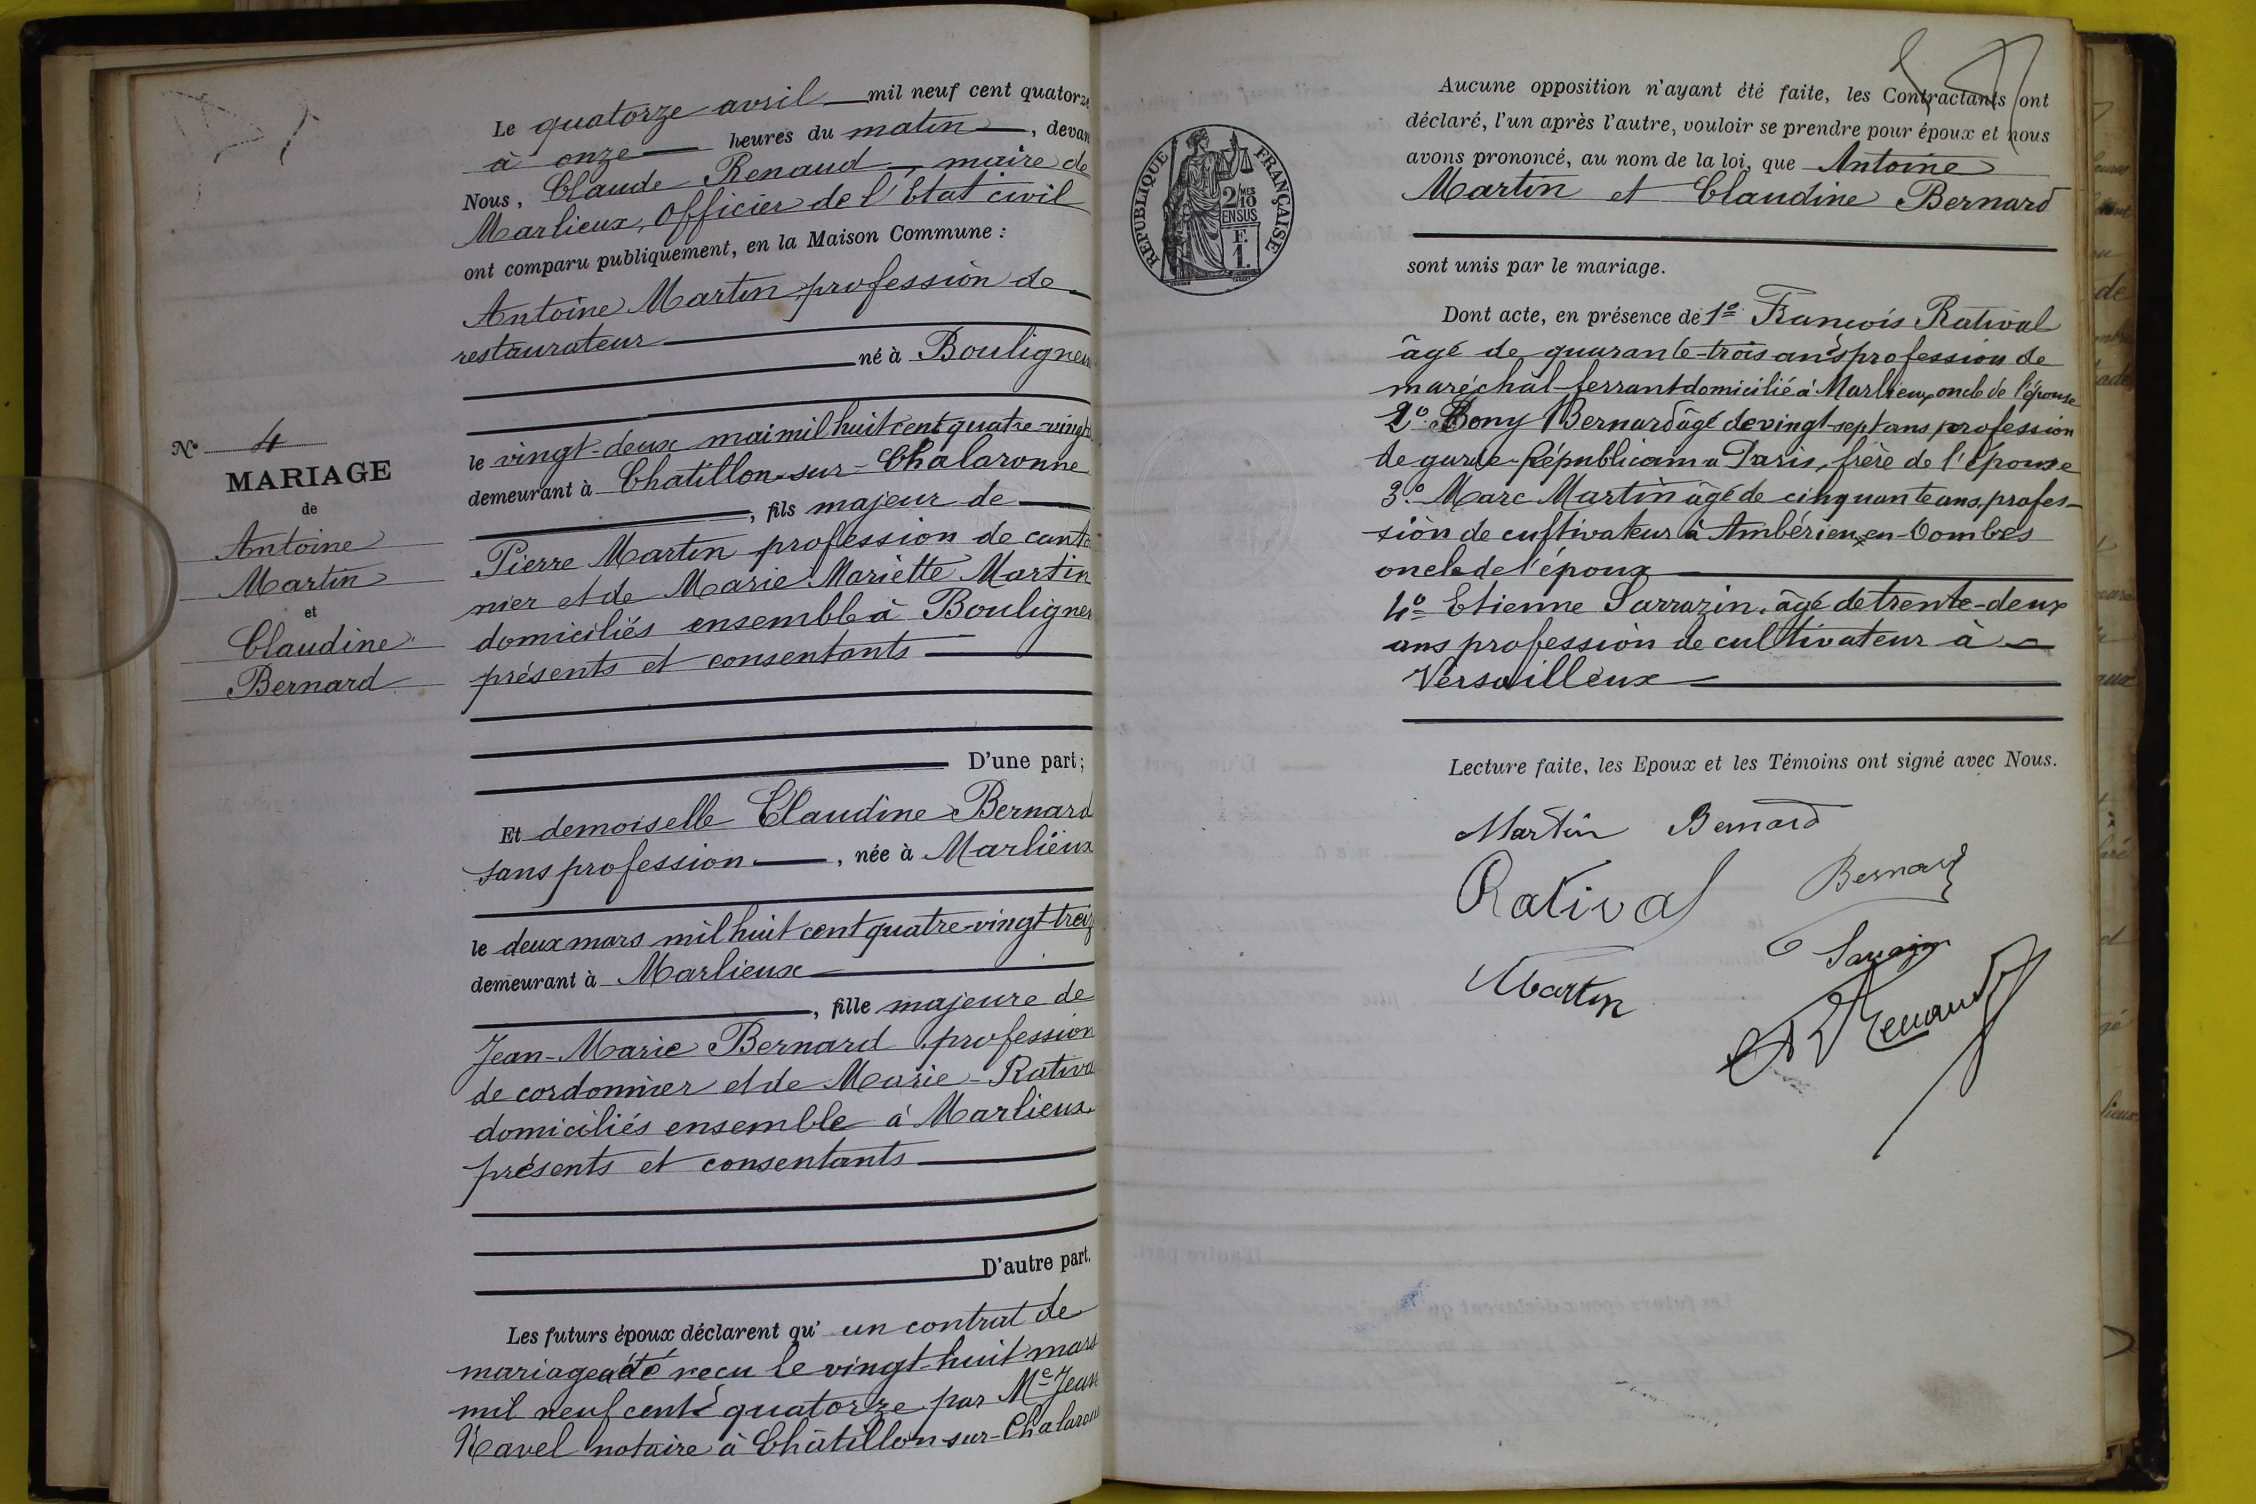 Le quatorze avril mil neuf cent quatorze
à onze heures du matin, devan
Nous, Claude Renaud maire de
Marlieux, officier de l'Etat civil
ont comparu publiquement, en la Maison Commune :
Antoine Martin, profession de
restaurateur
né à Bouligneu
le vingt-deux mai mil huit cent quatre-vingt
demeurant à Chatillon-sur-Chalaronne
, fils majeur de
Pierre Martin profession de canto
nier et de Marie Mariette Martin
domiciliés ensemble à Bouligneu
présents et consentants
D'une part;
N° 4
MARIAGE
de
Antoine
Martin
et
Claudine
Bernard
Et demoiselle Claudine Bernard
sans profession, née à Marlieux
le deux mars mil huit cent quatre-vingt-treiz
demeurant à Marlieux
, fille majeure de
Jean-Marie Bernard, profession
de cordonnier et de Marie-Rativa
domiciliés ensemble à Marlieux
présents et consentants
D'autre part.
Les futurs époux déclarent qu' un contrat de
mariage a été reçu le vingt-huit mars
mil neuf cent quatorze par Me Jean
Ravel notaire à Châtillon-sur-Chalaron
RÉPUBLIQUE FRANÇAISE
2 MES
10
EN SUS
F.
1.
Aucune opposition n'ayant été faite, les Contractants ont
déclaré, l'un après l'autre, vouloir se prendre pour époux et nous
avons prononcé, au nom de la loi, que Antoine
Martin et Claudine Bernard
sont unis par le mariage.
Dont acte, en présence de 1° François Ratival
âgé de quarante-trois ans profession de
maréchal-ferrant domicilié à Marlieux oncle de l'épouse
2° Bony Bernard âgé de vingt-sept ans profession
de garde-Républicain a Paris, frère de l'épouse
3° Marc Martin âgé de cinquante ans, profes-
sion de cultivateur à Ambérieux-en-Dombes
oncle de l'époux
4° Etienne Sarrazin, âgé de trente-deux
ans profession de cultivateur à
Versailleux
Lecture faite, les Epoux et les Témoins ont signé avec Nous.
Martin Bernard
Ratival Bernard
Martin Sarrazin
Renaud